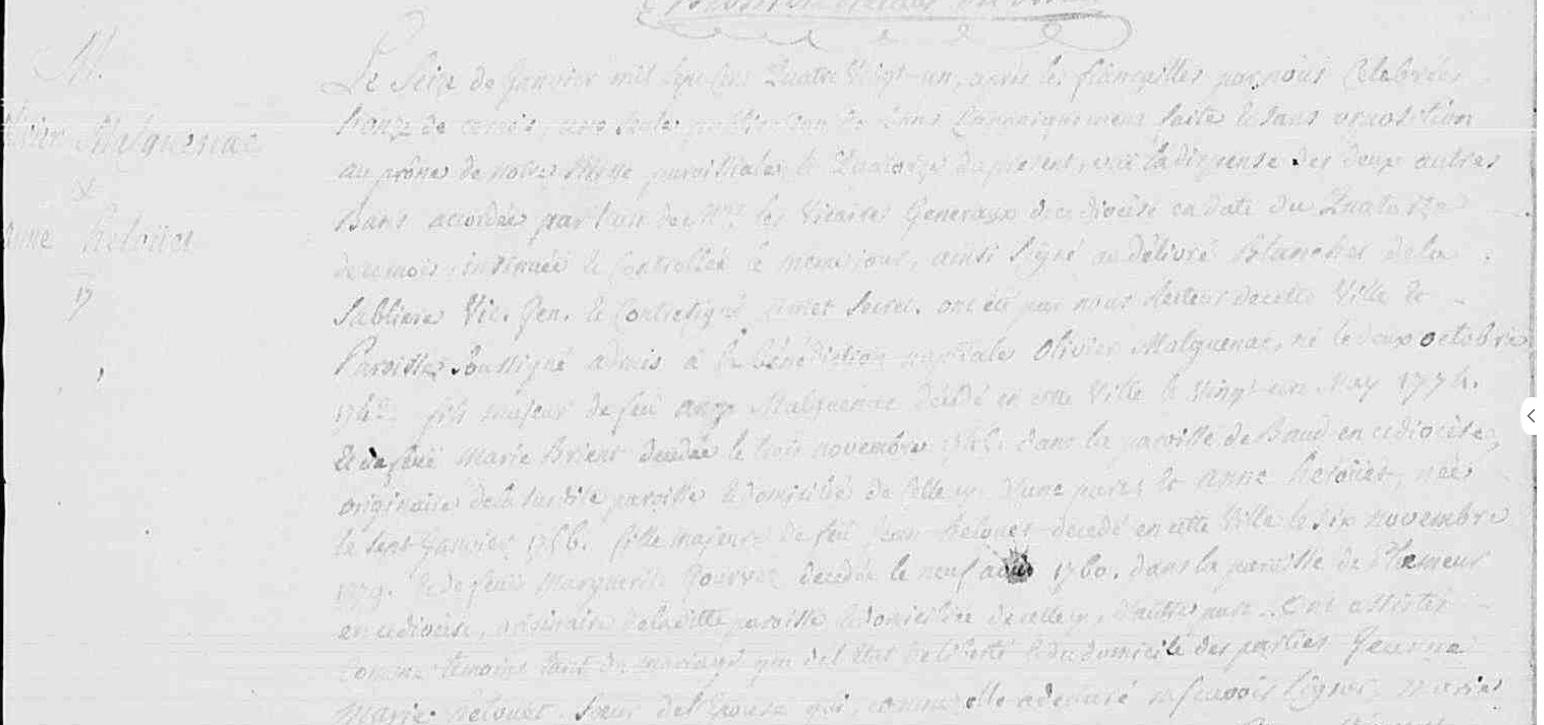 M.
Olivier Malguenac
&
Anne helouet
Le Seize de Janvier mil Sept Cent Quatre Vingt-un, après les fiançailles par nous Celebrées
de ce mois, une Seule publication de bans Canoniquement faite & Sans opposition
au prône de notre Messe paroissiale le Quatorze du présent, vue la dispense des deux autres
Bans accordée par l'un de Mrs les Vicaires Generaux de ce diocèse en date du Quatorze
de ce mois, insinuée & Controllée le même jour, ainsi Signé au délivré Blanchet de la
Sabliere Vic. Gen. & Contresigné Secret. ont été par nous Recteur de cette Ville &
Paroisse Soussigné admis à la bénédiction nuptiale Olivier Malguenac, né le deux octobre
fils majeur de feu Malguenac décédé en cette Ville le Vingt un May 1774.
& de feue Marie Brient décédée le trois novembre dans la paroisse de Baud en ce diocèse,
originaire de la susdite paroisse & domicilié de celle cy d'une part; & Anne helouet, née
le Sept Janvier 1756. fille majeure de feu Jean helouet décédé en cette Ville le Six novembre
1779. & de feue Marguerite décédée le neuf août 1760. dans la paroisse de Plœmeur
en ce diocèse, originaire de la ditte paroisse & domiciliée de celle cy, d'autre part. Ont assistés
Comme témoins tant du mariage que de l'état de liberté & du domicile des parties Jeanne
Marie helouet Sœur de l'Epouse qui, comme elle a declaré ne Sçavoir Signer, Marie